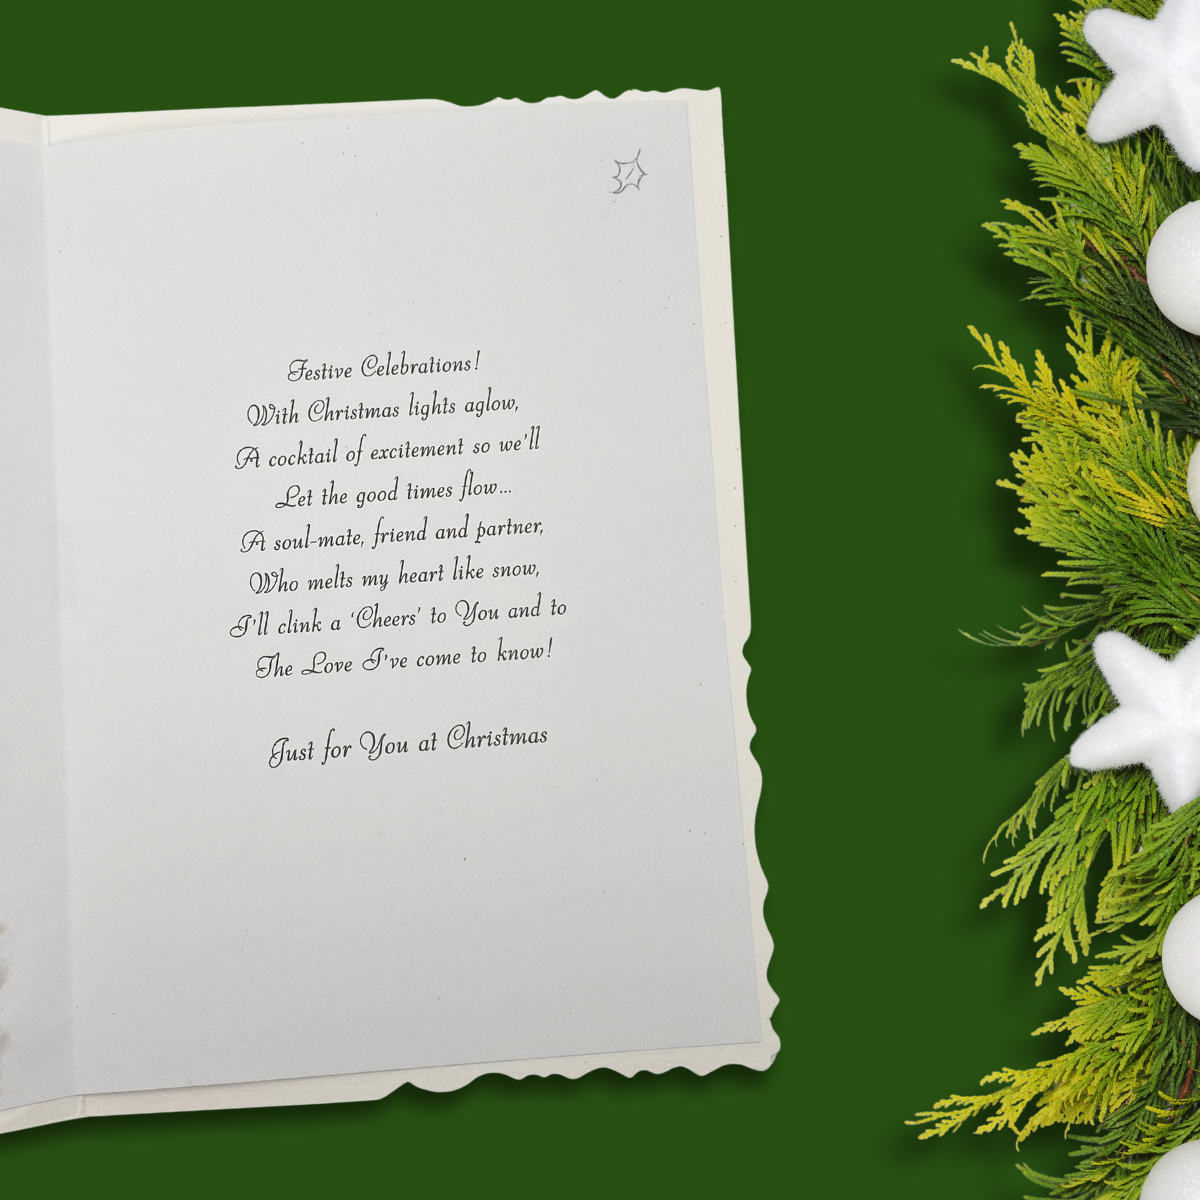 Festive Celebrations!
With Christmas lights aglow,
A cocktail of excitement so we'll
Let the good times flow...
A soul-mate, friend and partner,
Who melts my heart like snow,
I'll clink a 'Cheers' to You and to
The Love I've come to know!
Just for You at Christmas